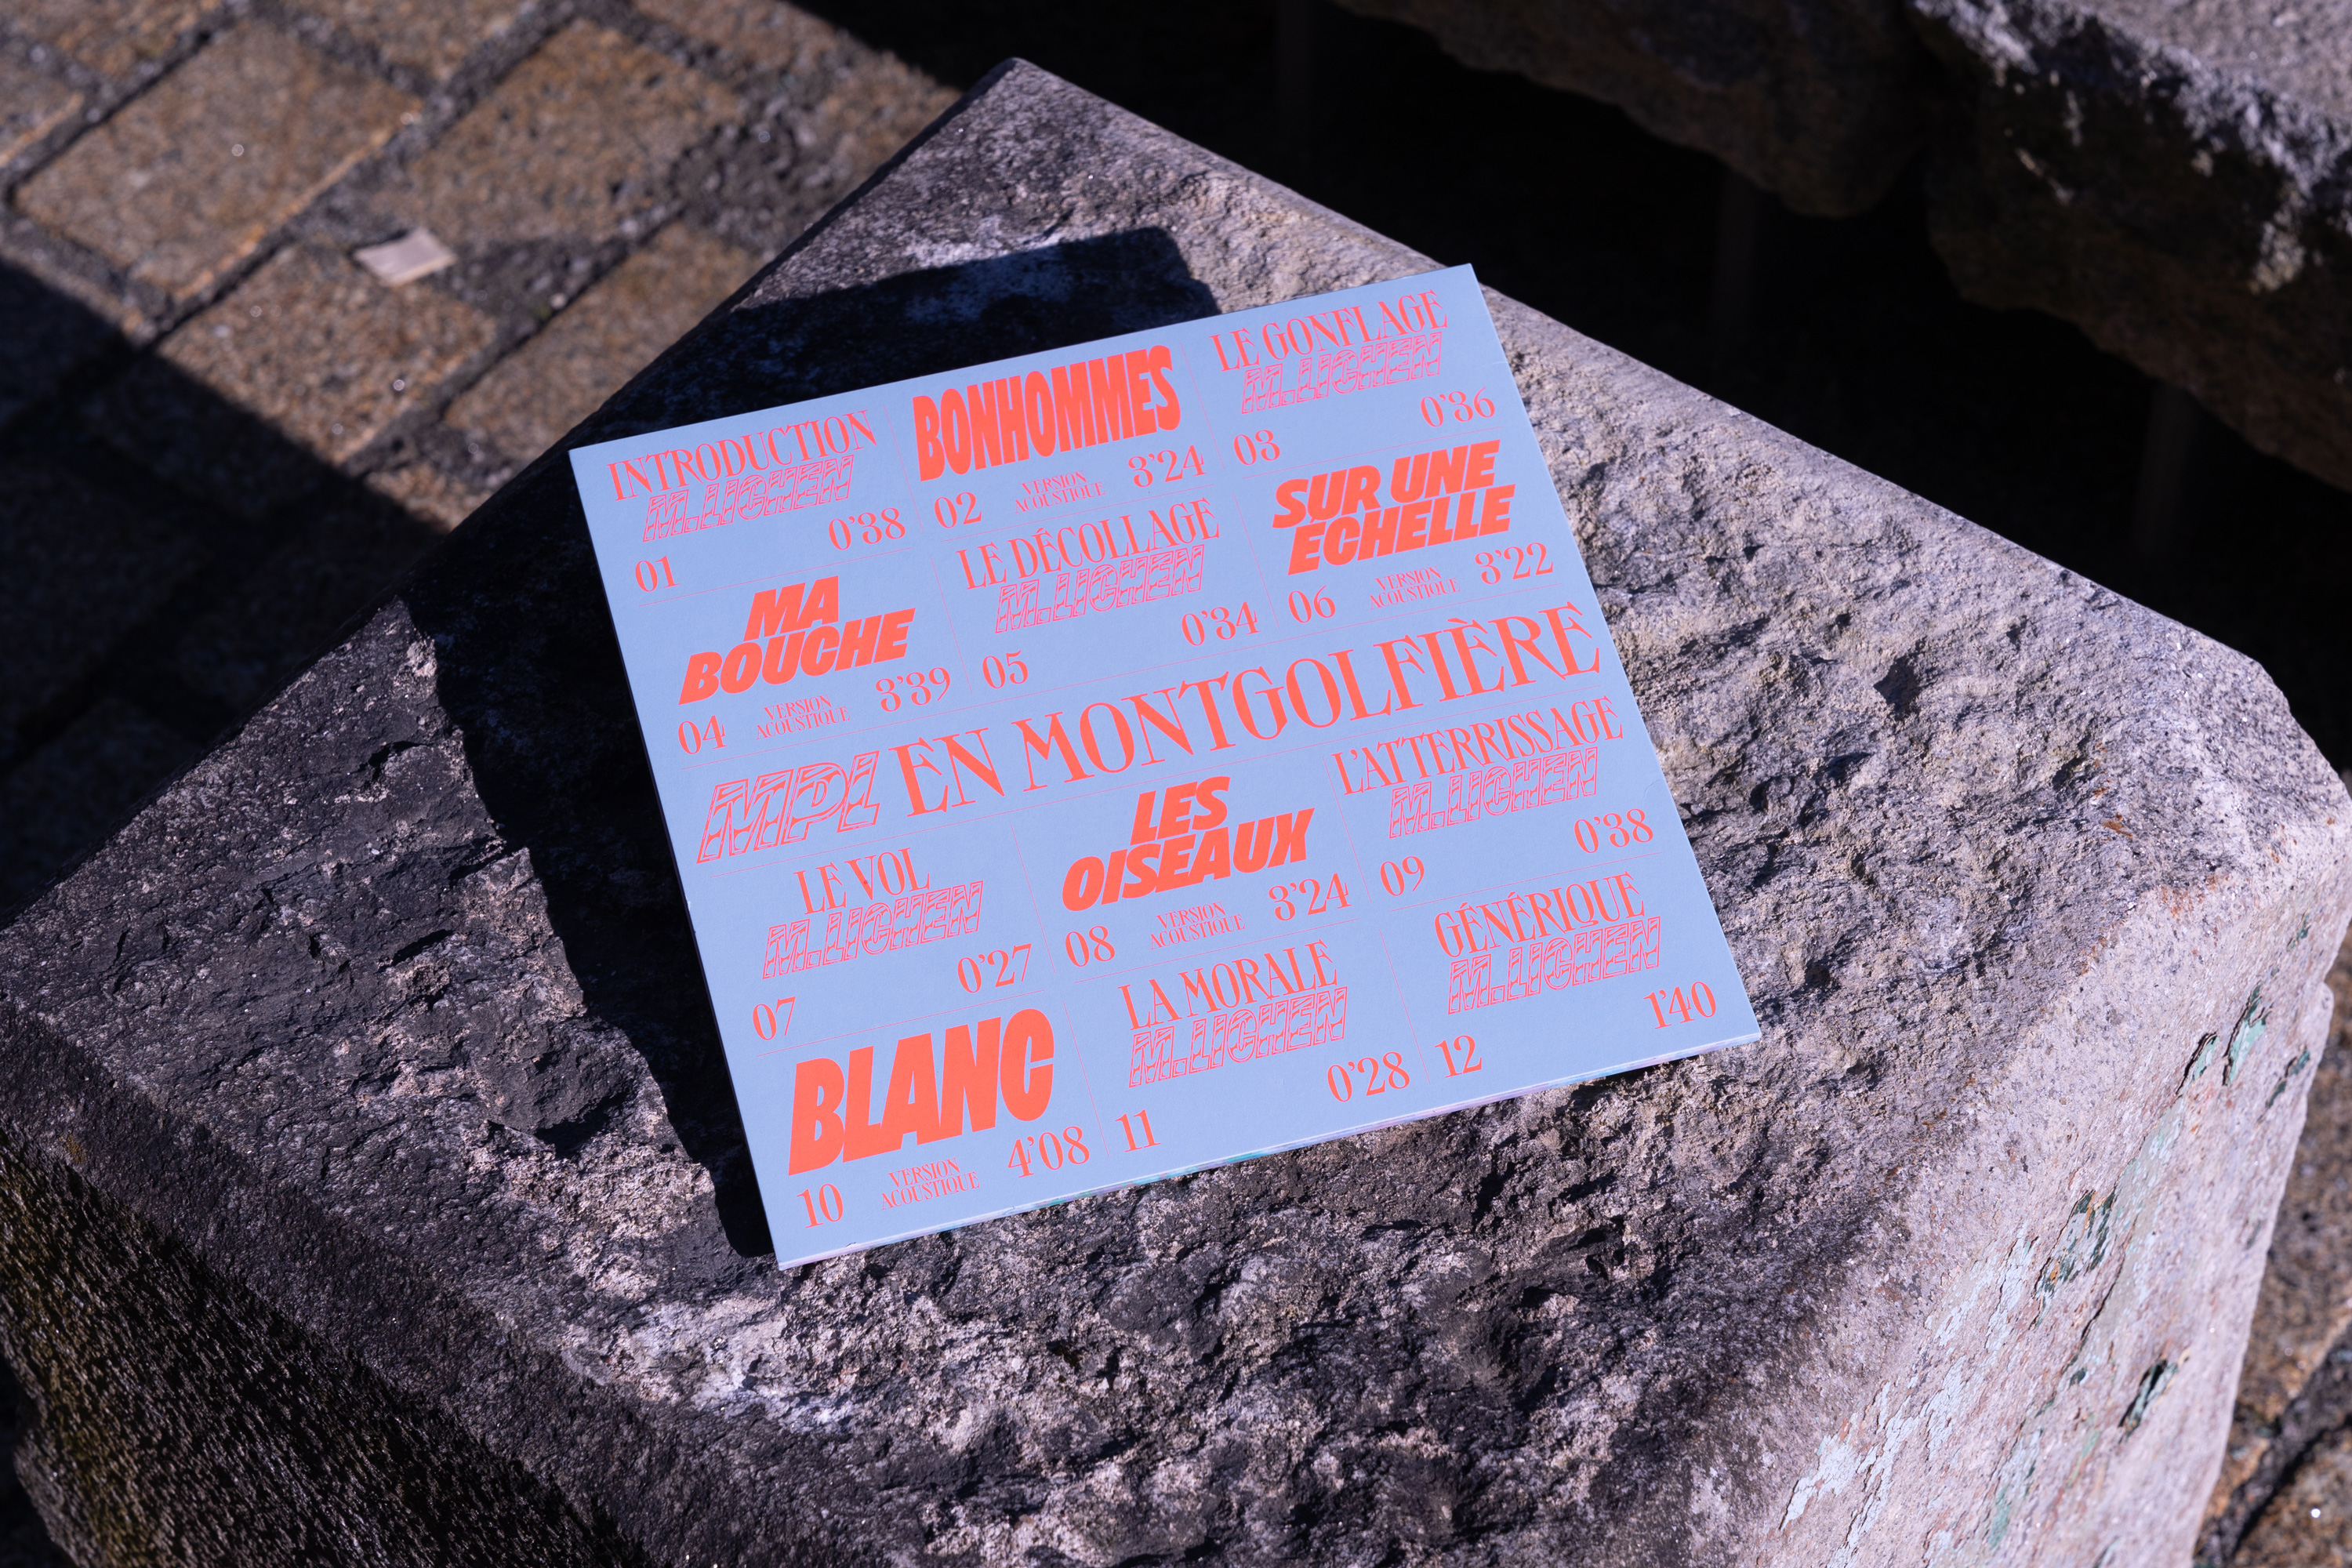 INTRODUCTION
M.LICHEN
01 0'38
BONHOMMES
02 VERSION ACOUSTIQUE 3'24
LE GONFLAGE
M.LICHEN
03 0'36
MA
BOUCHE
04 VERSION ACOUSTIQUE 3'39
LE DÉCOLLAGE
M.LICHEN
05 0'34
SUR UNE
ÉCHELLE
06 VERSION ACOUSTIQUE 3'22
MPL EN MONTGOLFIÈRE
LE VOL
M.LICHEN
07 0'27
LES
OISEAUX
08 VERSION ACOUSTIQUE 3'24
L'ATTERRISSAGE
M.LICHEN
09 0'38
BLANC
10 VERSION ACOUSTIQUE 4'08
LA MORALE
M.LICHEN
11 0'28
GÉNÉRIQUE
M.LICHEN
12 1'40